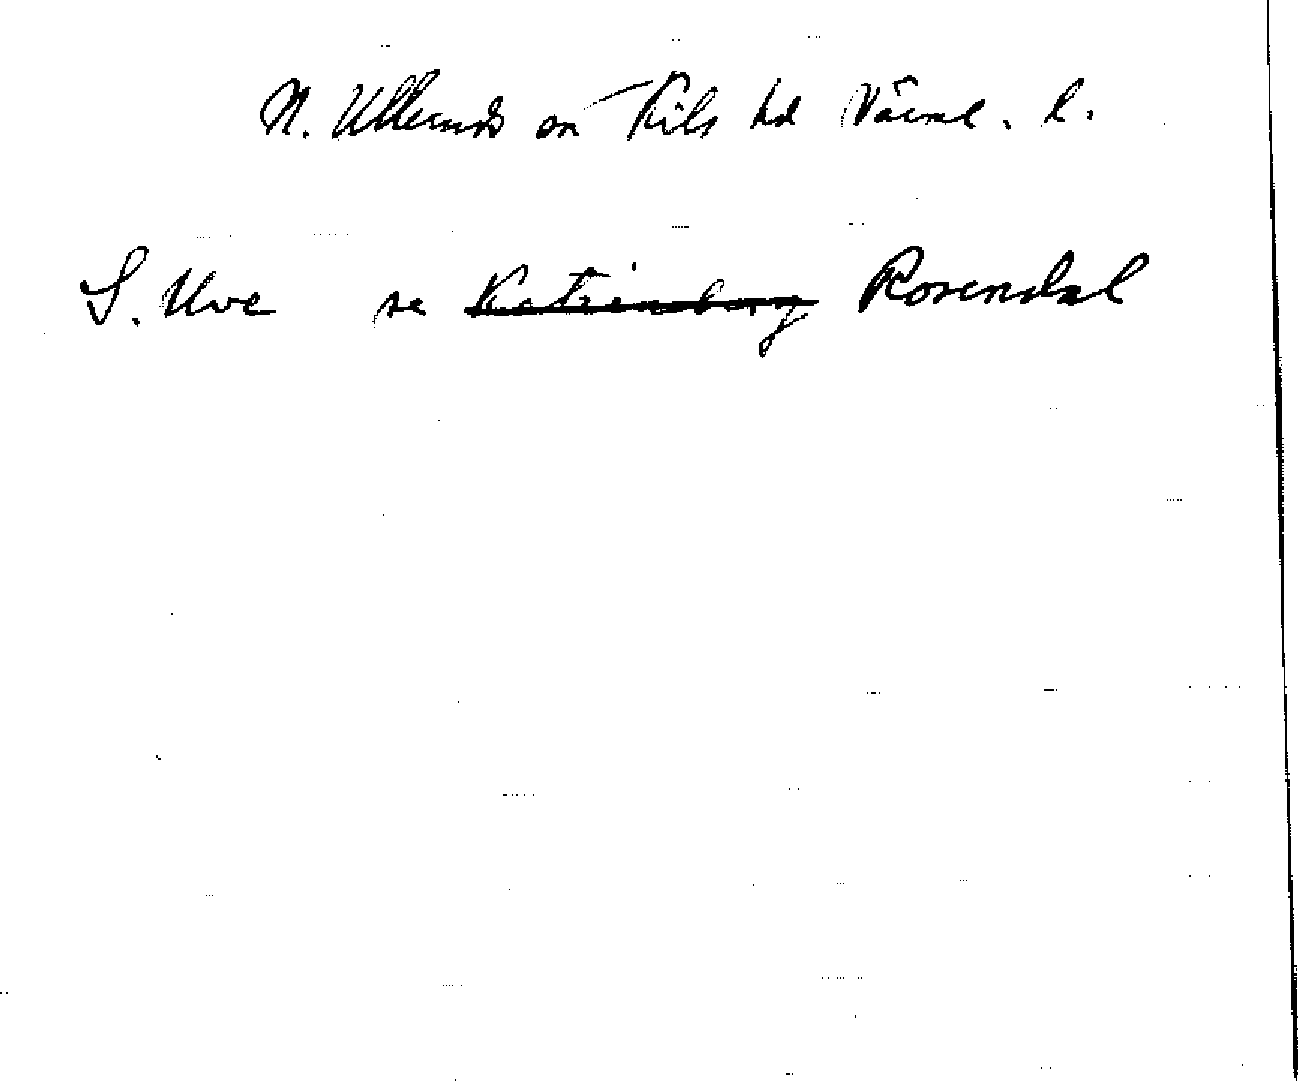 N. Ulleruds sn Kils hd Värml. l.
S. Ulve se Katrineberg Rosendal